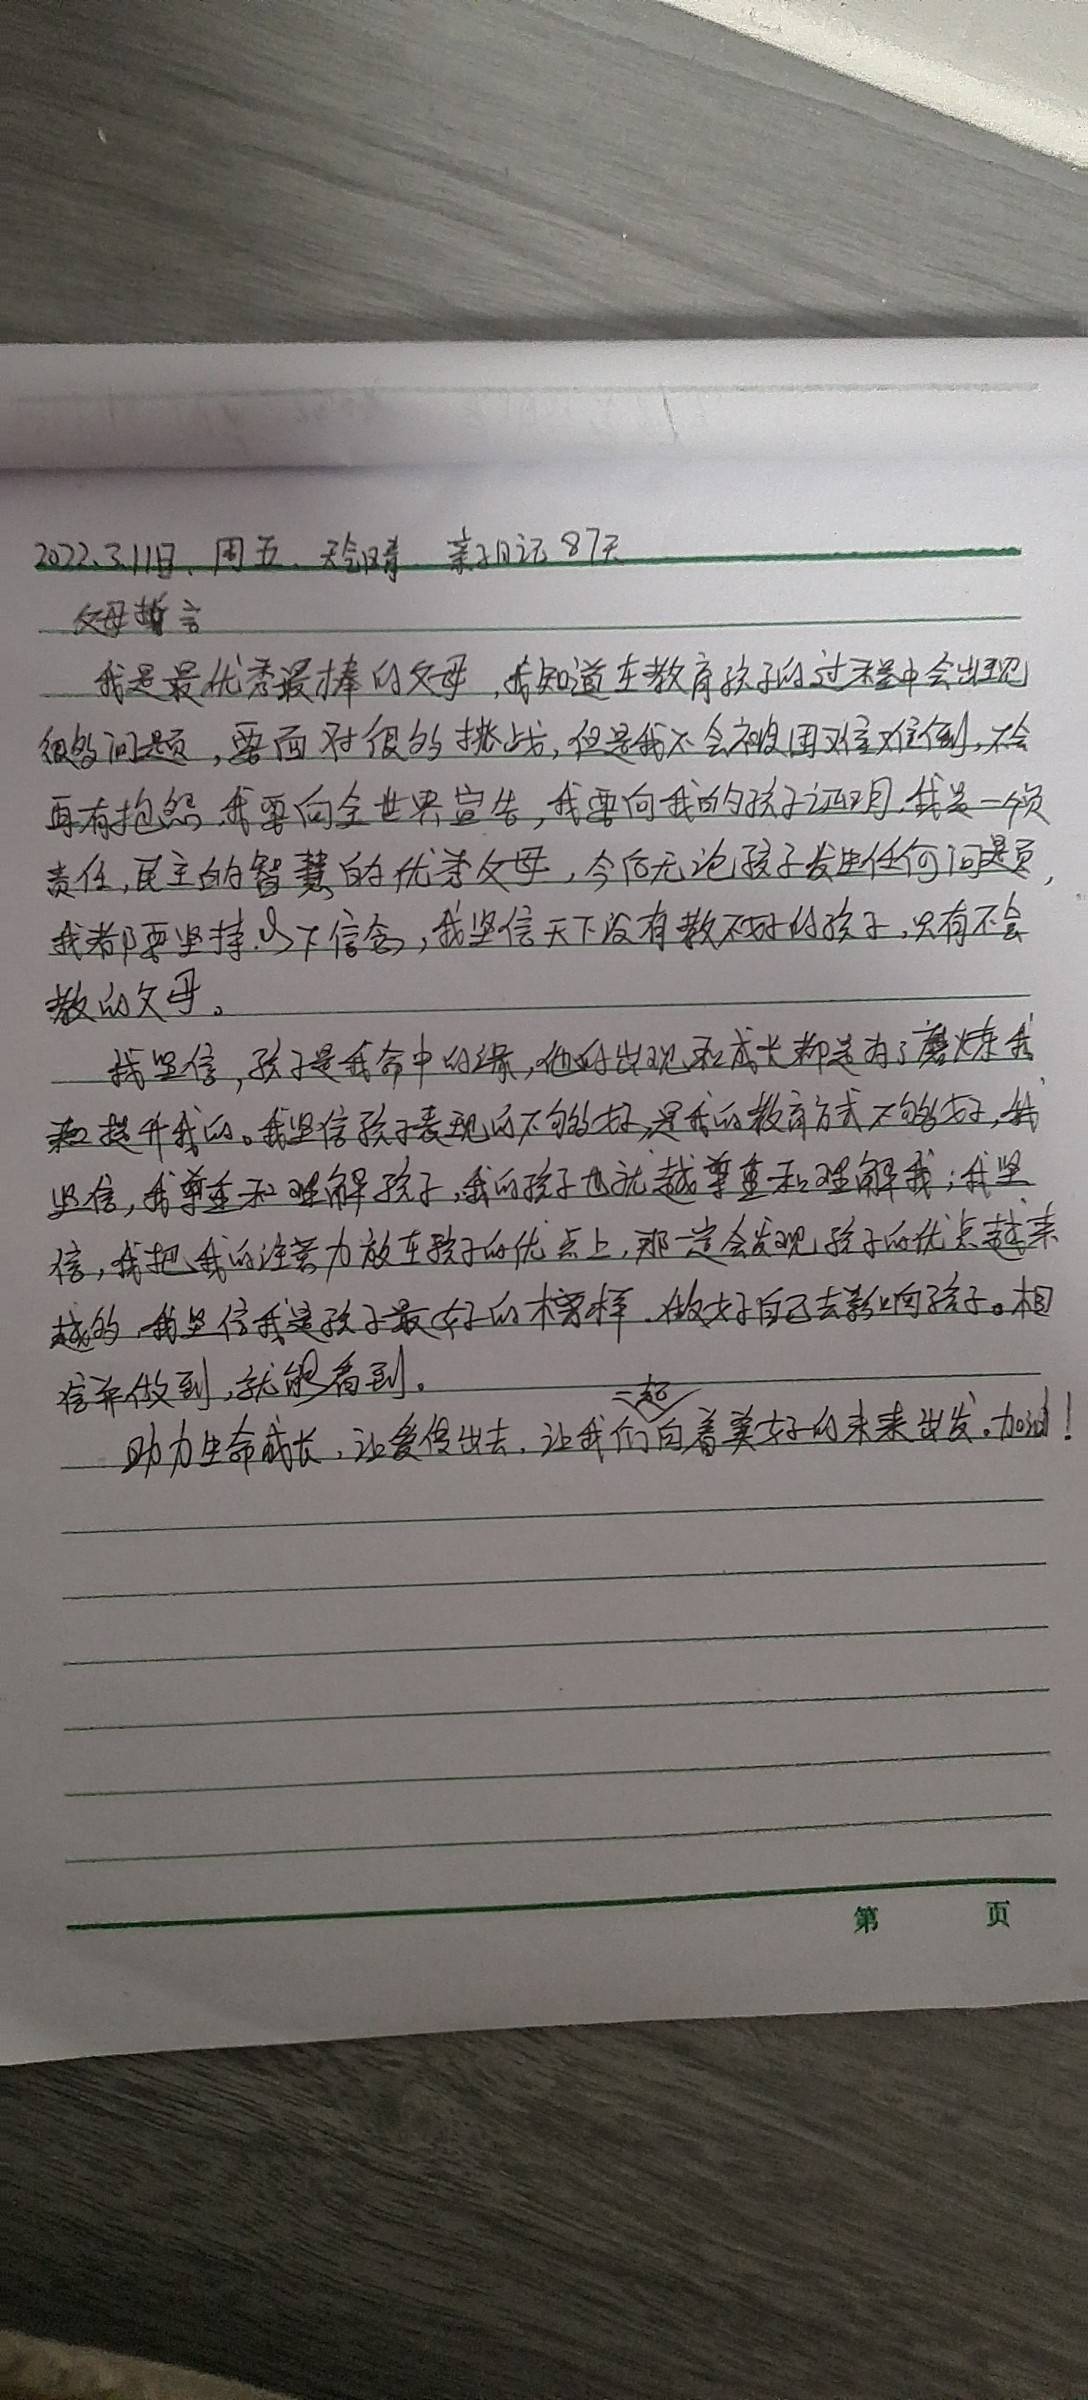 2022.3.11日、周五、天气晴、亲子日记87天
父母誓言
我是最优秀最棒的父母，我知道在教育孩子的过程中会出现
很多问题，要面对很多挑战，但是我不会被困难难倒，不会
再有抱怨，我要向全世界宣告，我要向我的孩子证明，我是一个负
责任，民主的智慧的优秀父母，今后无论孩子发生任何问题，
我都要坚持以下信念，我坚信天下没有教不好的孩子，只有不会
教的父母。
我坚信，孩子是我命中的缘，他的出现和成长都是为了磨炼我
和提升我的。我坚信孩子表现的不够好，是我的教育方式不够好，我
坚信，我尊重和理解孩子，我的孩子也就越尊重和理解我；我坚
信，我把我的注意力放在孩子的优点上，那一定会发现孩子的优点越来
越多，我坚信我是孩子最好的榜样，做好自己去影响孩子。相
信并做到，就能看到。
助力生命成长，让爱传出去，让我们一起向着美好的未来出发。加油！
第 页